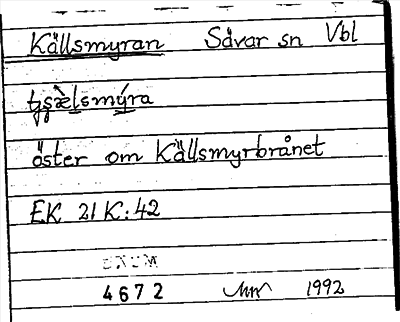 Källsmyran Sävar sn Vbl
tjsæ̀lsmýra
öster om Källsmyrbrånet
EK 21 K: 42
DNUM
4672 1992